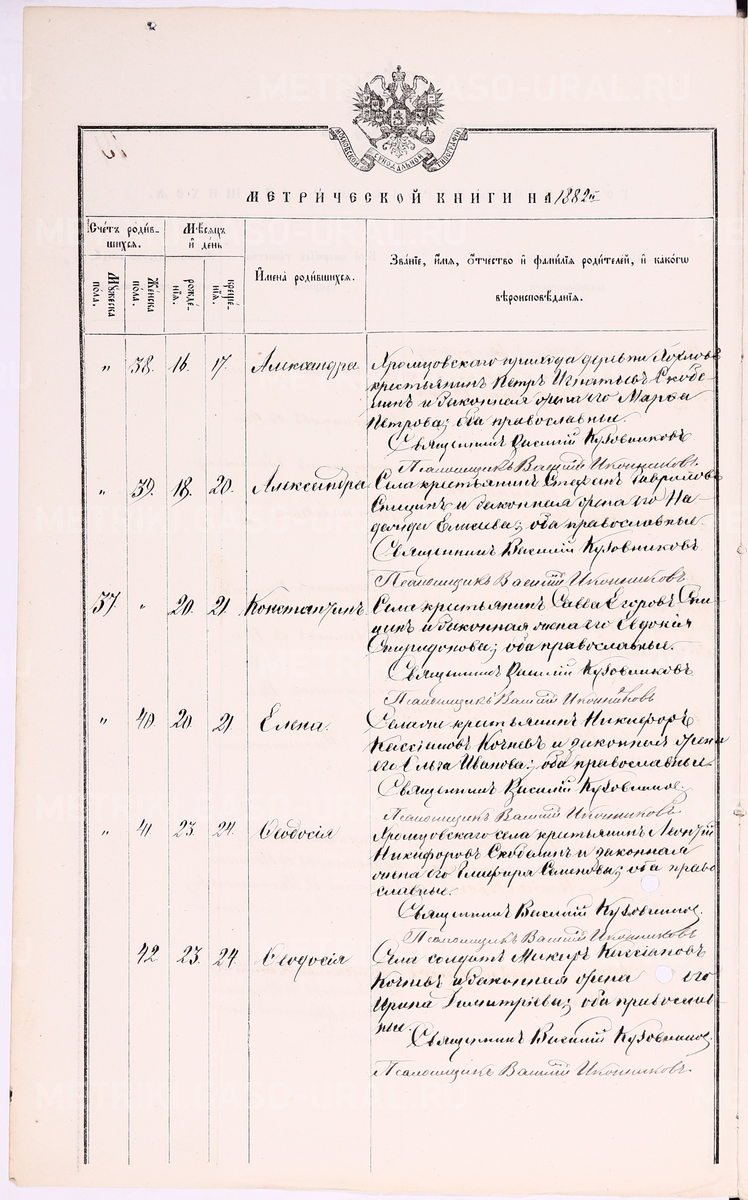 METRIKI.GASO-URAL.RU
МЕТРИЧЕСКОЙ КНИГИ НА 1882й
Счетъ родив-
шихся.
Мѣсяцъ
и день
Имена родившихся.
Званіе, имя, отчество и фамилія родителей, и какогѡ
вѣроисповѣданія.
Мужеска
пола.
Женска
пола.
рожде-
нія.
креще-
нія.
" 38. 16. 17. Александра Хромцовскаго прихода деревни
крестьянинъ Петръ Игнатьевъ Скобе-
линъ и законная жена его Марѳа
Петрова; оба православные.
Священникъ Василій Кузовниковъ
Псаломщикъ Василій Иконниковъ
" 39. 18. 20. Александра Села крестьянинъ Стефанъ Гавриловъ
Спицинъ и законная жена его На-
дежда Елисеева; оба православные.
Священникъ Василій Кузовниковъ
Псаломщикъ Василій Иконниковъ
37. " 20. 21. Константинъ Села крестьянинъ Савва Егоровъ Спи-
цинъ и законная жена его Евдокія
Спиридонова; оба православные.
Священникъ Василій Кузовниковъ
Псаломщикъ Василій Иконниковъ
" 40 20 21 Елена. крестьянинъ Никифоръ
Кассіановъ Кочневъ и законная жена
его Ольга Иванова; оба православные.
Священникъ Василій Кузовников.
Псаломщикъ Василій Иконниковъ
" 41 23. 24. Ѳеодосія Хромцовскаго села крестьянинъ Леонтій
Никифоровъ Скобелинъ и законная
жена его Глафира Семенова; оба право-
славные.
Священникъ Василій Кузовников.
Псаломщикъ Василій Иконниковъ
42 23. 24 Ѳеодосія Села солдатъ Кассіановъ
Кочневъ и законная жена его
Ирина Димитріева; оба православ-
ные.
Священникъ Василій Кузовников.
Псаломщикъ Василій Иконниковъ.